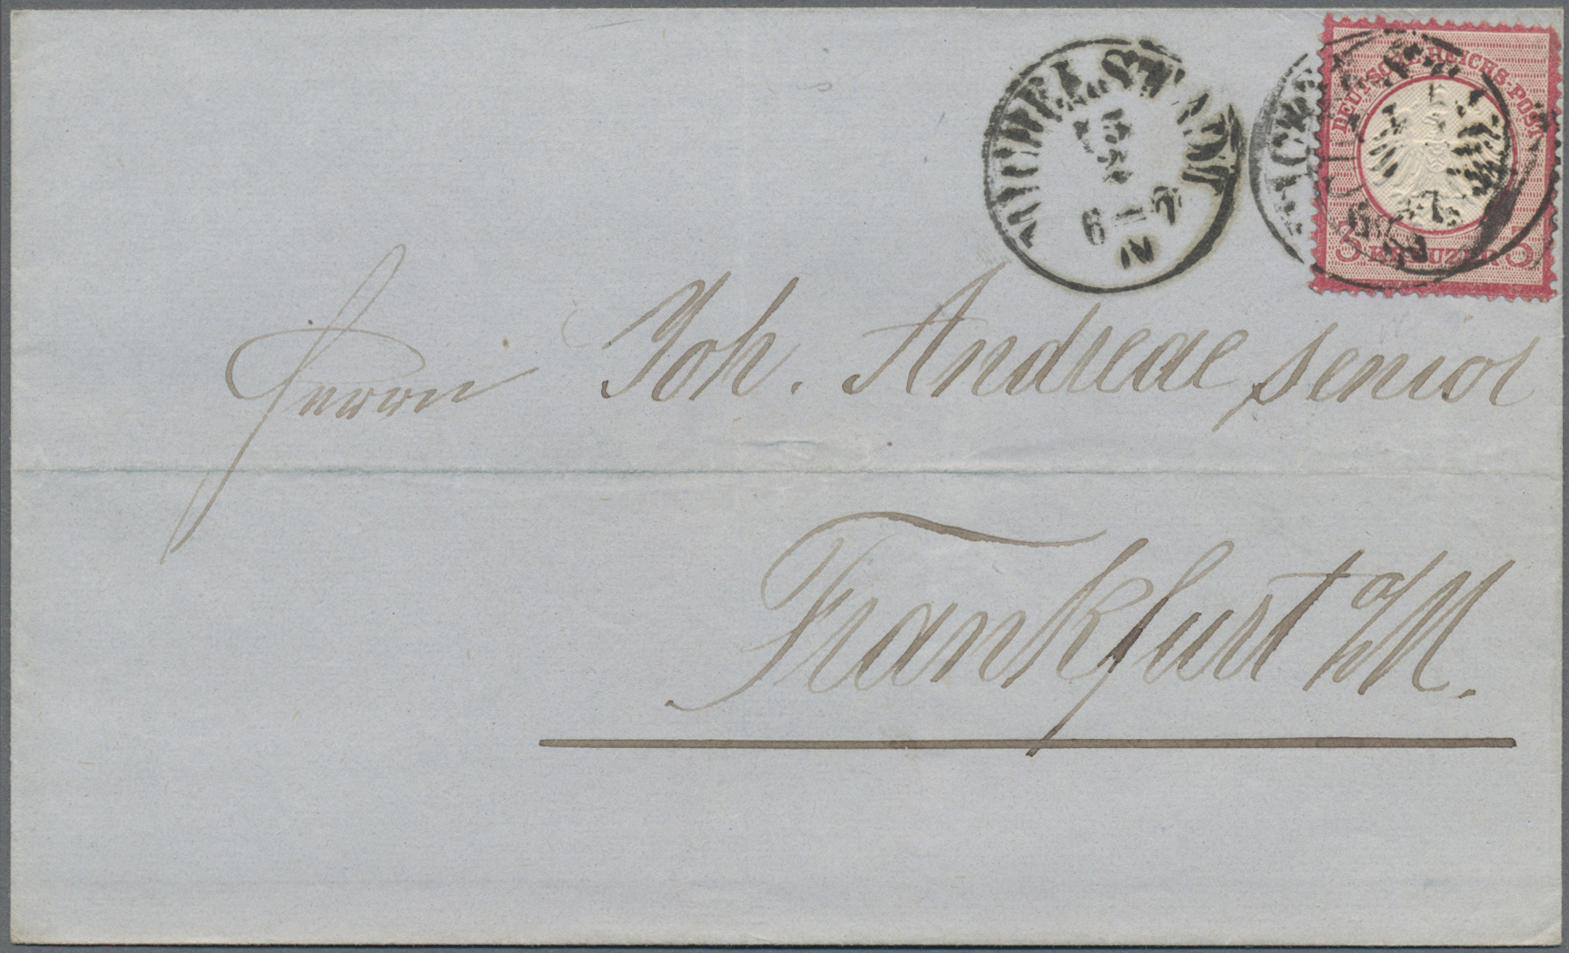 MICHELSTADT
DEUTSCHE REICHS-POST
3 KREUZER 3
Herrn Joh. Andreae senior
Frankfurt a/M.